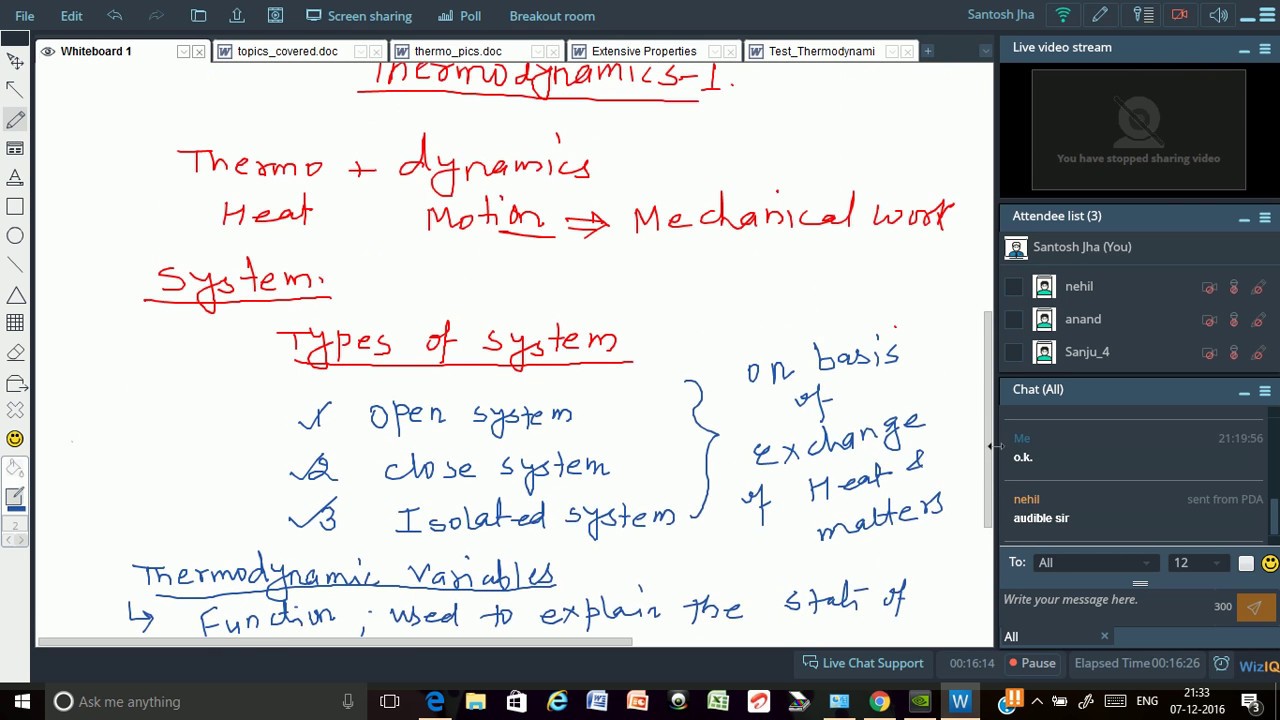 File Edit Screen sharing Poll Breakout room Santosh Jha
Whiteboard 1 topics_covered.doc thermo_pics.doc Extensive Properties Test_Thermodynami
Thermodynamics-1.
Thermo + dynamics
Heat Motion ⇒ Mechanical work
System.
Types of system
1 open system
2 close system
3 Isolated system
on basis
of
exchange
of Heat &
matters
Thermodynamic Variables
↳ Function ; used to explain the stati of
Live video stream
You have stopped sharing video
Attendee list (3)
Santosh Jha (You)
nehil
anand
Sanju_4
Chat (All)
Me 21:19:56
o.k.
nehil sent from PDA
audible sir
To: All 12
Write your message here. 300
All
2
Live Chat Support 00:16:14 Pause Elapsed Time 00:16:26 WizIQ
Ask me anything
ENG 21:33
07-12-2016
3